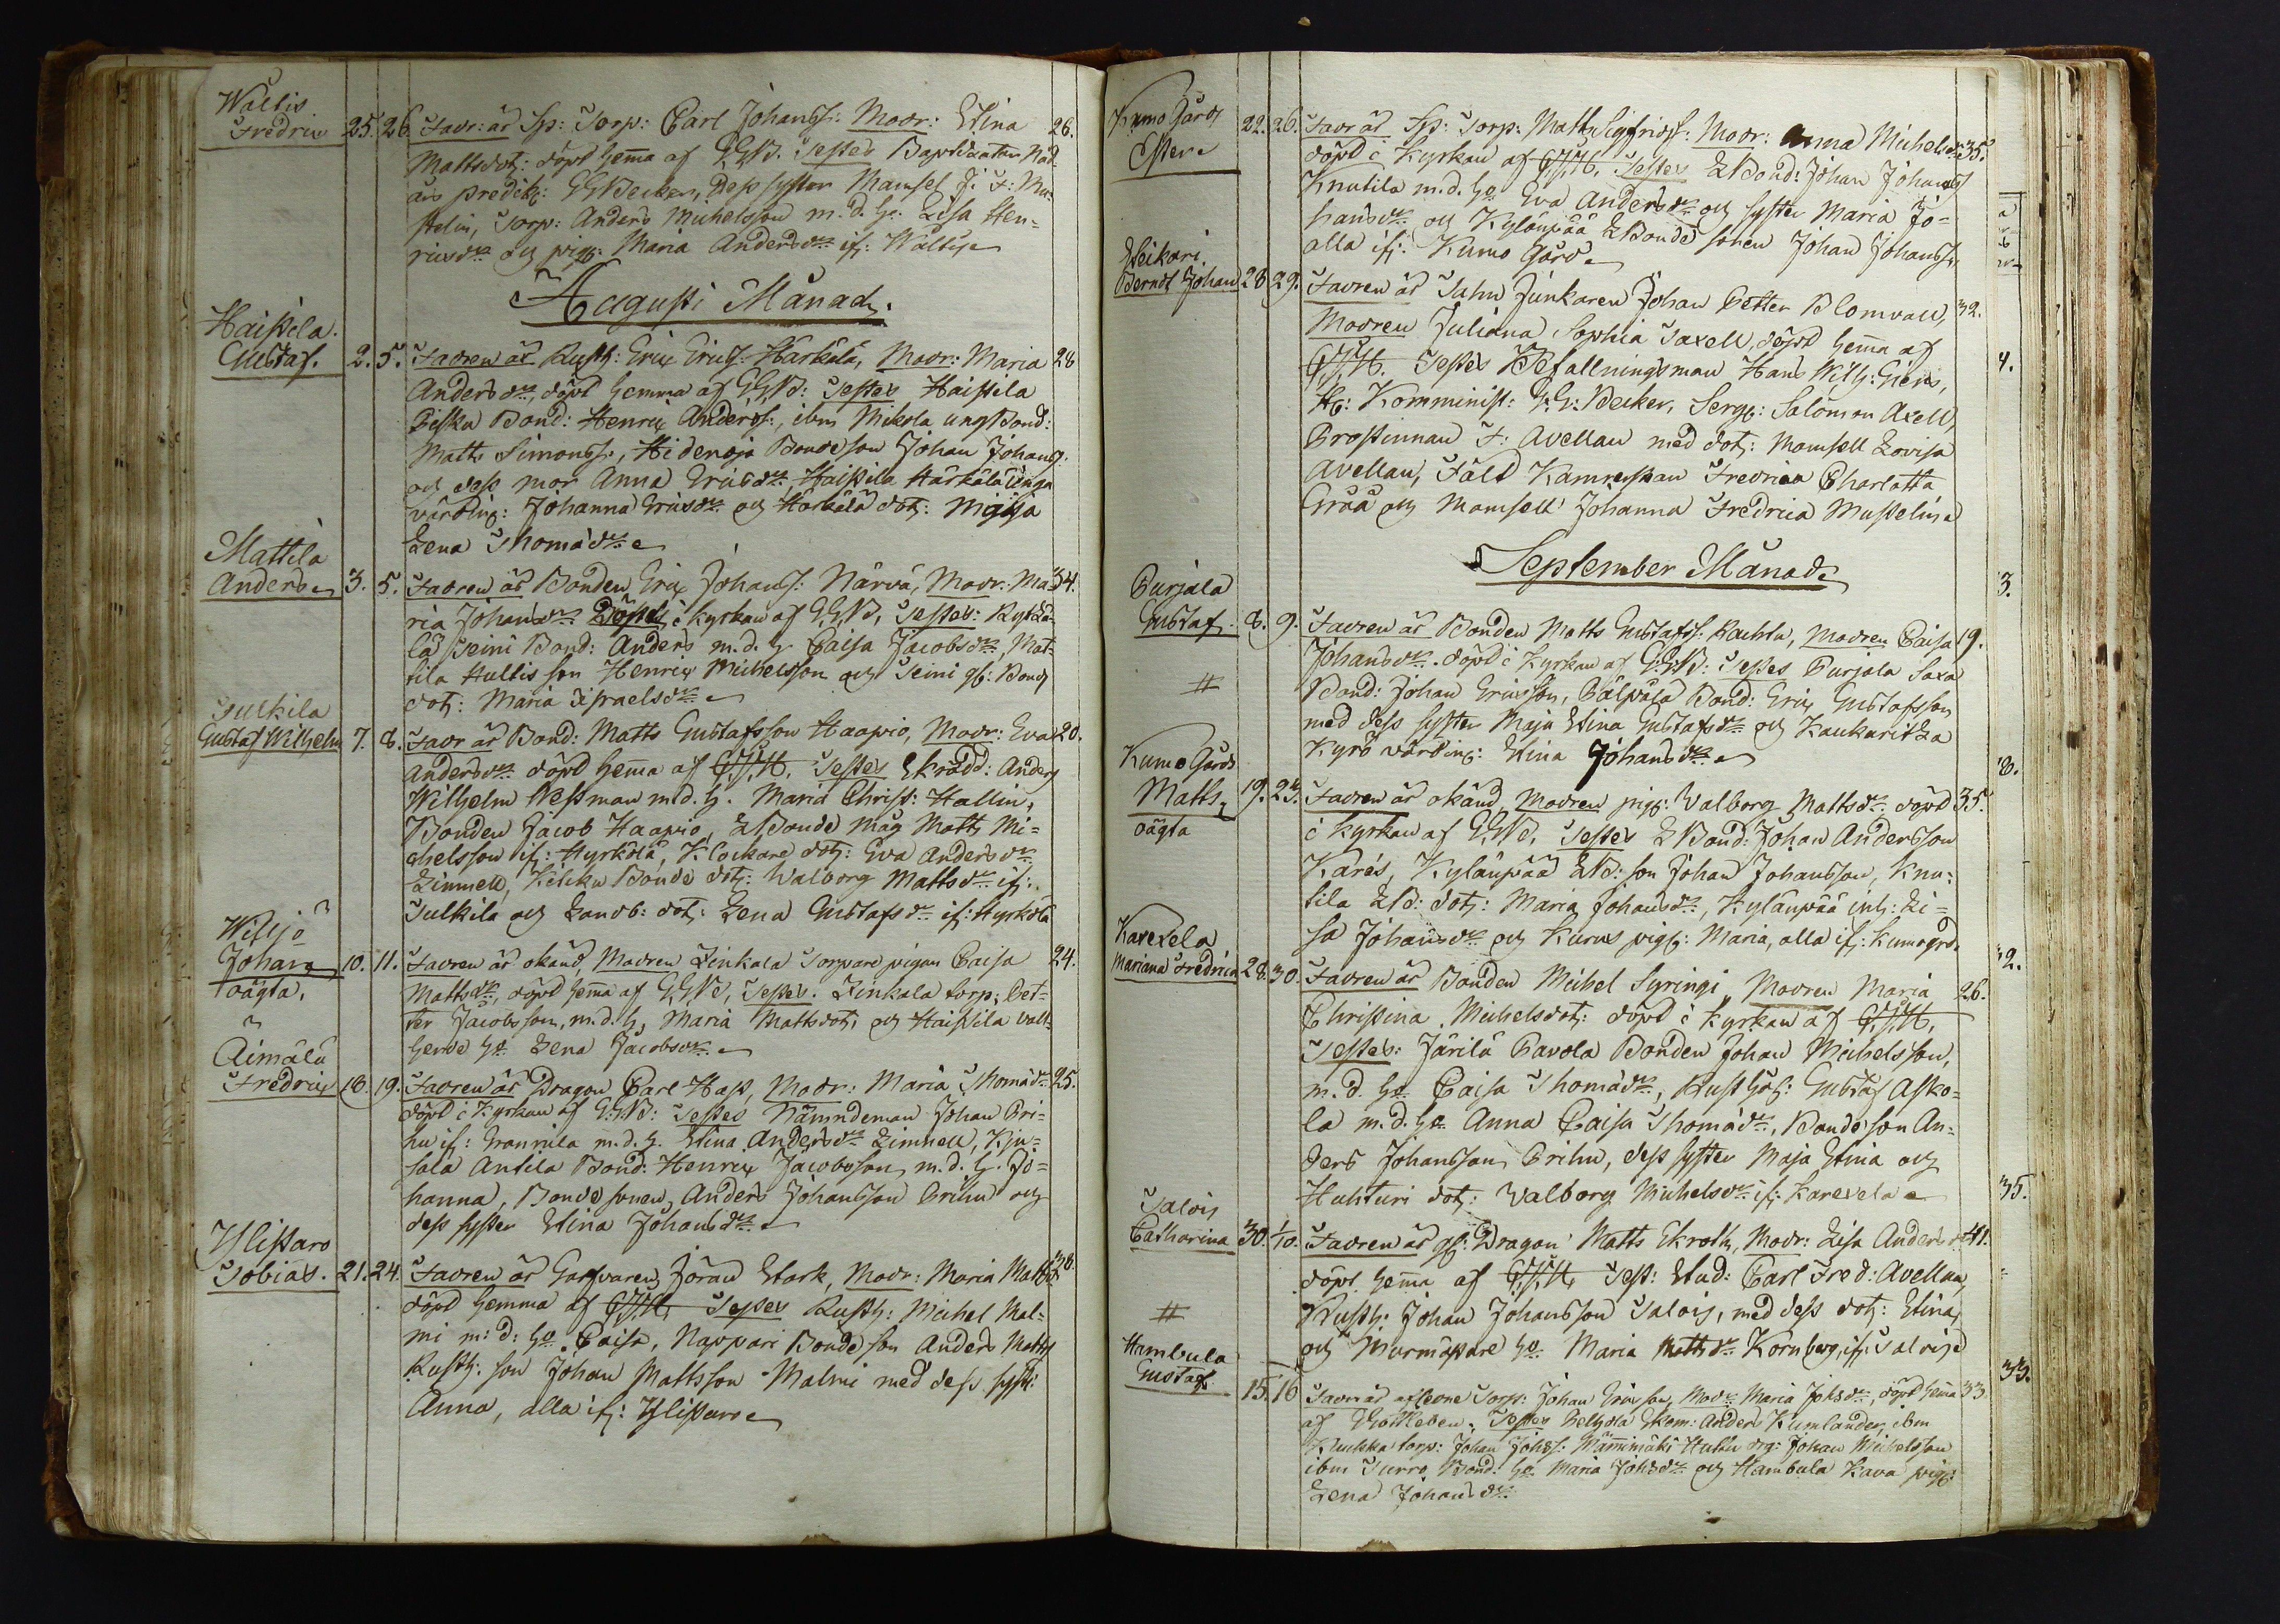 Wältis
Fredric 25. 26. Fadr: är Sp: Torp: Carl Johanss: Modr: Stina 26.
Mattsdotr: döpt hema af GGB. Testes
års predik: GGBecker, Dess syster Mamsell
Torp: Anders Michelsson m. d. ho. Lisa Hen-
ricsdr och pig: Maria Andersdr if: Wältis
Augusti Månad.
Haistila.
Gustaf. 2. 5. Fadren är Rusth: Eric Ericss: Härkälä, Modr: Maria 28
Andersdr, döpt hemma af GGB: Testes Haistila
Piska Bond: Henric Anderss:, ibm Mikola ung Bond:
Matts Simonss:, Hidenoja Bondeson Johan Johanss:
och dess mor Anna Ericsdr, Haistila Härkälä unga
värdin: Johanna Ericsdr och Härkälä dotr: Majsa
Lena Thomädr
Mattila
Anders 3. 5. Fadren är Bonden Eric Johanss: Närvä, Modr: Ma 34.
ria Johansdr Döptes i kyrkan af GGB, Testes:
lä Seini Bond: Anders m. d. h. Caisa Jacobsdr, Mat-
tila Hultis son Henric Michelsson och Seini gf: Bond
dotr: Maria Israelsdr
Tulkila
Gustaf Wilhelm 7. 8. Fadr är Bond: Matts Gustafsson Haapio, Modr: Eva 20.
Andersdr döpt hema af Testes Skrädd: Anders
Wilhelm Westman m d. h. Maria Christ: Hallin,
Bonden Jacob Haapio, L Bonde måg Matts Mi-
chelsson if: Hyrkölä, Klockare dotr: Eva Andersdr
Limnell, Kilcku Bonde dotr: Walborg Mattsdr if:
Tulkila och Landb: dotr: Lena Gustafsdr if: Hyrkölä
Wiljo
Johan 10. 11. Fadren är okänd, Modren Linkala Torpare pigan Caisa 24.
oägta.
Mattsdr, döpt hema af GGB, Testes. Linkala torp: Pet-
ter Jacobsson, m. d. h. Maria Mattsdotr och Haistila vall-
herde ho Lena Jacobsdr
Aimälä
Fredric 18. 19. Fadren är Dragon Carl Hass, Modr: Maria Thomädr 25.
döpt i kyrkan af GGB: Testes Nämndeman Johan Pri-
hu if: Grannila m. d. h. Stina Andersdr Limnell, Kju-
sala Antila Bond: Henric Jacobsson, m. d. h. Jo-
hanna, Bonde sonen, Anders Johansson Prihu och
dess syster Stina Johansdr
Ylistaro
Tobias. 21. 24. Fadren är Garfvaren Jöran Stark, Modr: Maria Mattsdr 38.
döpt hemma af Testes Rusth: Michel Mal-
mi m: d: ho. Caisa, Nappari Bonde son Anders Matts
Rusth: son Johan Mattsson Malmi med dess syst:
Anna, alla if: Ylistaro
Kumo Gård
Ester 22. 26. Fadr är Sp: Torp: Matts Sigfridss: Modr: Anna Michelsdr 35.
döpt i kyrkan af Testes L Bond: Johan Johans
Knutila m. d. ho Eva Andersdr och syster Maria Jo-
hansdr och Kylänpää L Bonde sonen Johan Johanss,
alla if: Kumo Gård
Steikari.
Berndt Johan 28 29. Fadren är Fahn Junkaren Johan Petter Blomvall, 32.
Modren Juliana Sophia Taxell, döpt hema af
Testes Befallningsman Hans Wilh: Giers,
Komminist: G. G: Becker, Serg: Salomon Axell,
Prostinnan F: Avellan med dotr: Mamsell Lovisa
Avellan, Fält Kamrerskan Fredrica Charlotta
Gråå och Mamsell Johanna Fredrica Mustelin
September Månad.
Purjala
Gustaf. 8. 9. Fadren är Bonden Matts Gustafss: Rauhtu, Modren Caisa 19.
Johansdr. döpt i kyrkan af GGB: Testes Purjala Saxa
Bond: Johan Ericsson, Bond: Eric Gustafsson
med dess syster Maja Stina Gustafsdr och Kaukaritza
Kyrö värdin: Stina Johansdr
Kumo Gård
Matts 19. 23. Fadren är okänd, Modren pig: Valborg Mattsdr döpt 35.
oägta
i kyrkan af GGB, Testes L Bond: Johan Andersson
Karés, Kylänpää LB: son Johan Johansson, Knu-
tila LB: dotr: Maria Johansdr, Kylänpää inh: Li-
sa Johansdr och Kurus pig: Maria, alla if: Kumogrd.
Karexela
Mariana Fredrica 28. 30. Fadren är Bonden Michel Syringi, Modren Maria 26.
Christina Michelsdotr: döpt i kyrkan af
Testes: Järilä Pavola Bonden Johan Michelsson,
m. d. ho Caisa Thomädr, Rusthåll: Gustaf Asko-
la m. d. ho Anna Caisa Thomädr, Bonde son An-
ders Johansson Prihu, dess syster Maja Stina och
Huhturi dotr: Valborg Michelsdr if: Karexela
Talois
Catharina 30. 1/10. Fadren är gf: Dragon Matts Ekroth, Modr: Lisa Andersdr 41.
döpt hema af Test: Stud: Carl Fred: Avellan,
Rusth: Johan Johansson Talois, med dess dotr: Stina,
och Murmästare ho Maria Mattsdr Kornberg, if: Talois
Hambula
Gustaf 15. 16 Fadren är afledne Torp: Johan Ericsson, Modr Maria Johsdr, döpt hema 33.
af Testes Anders Kumlander, ibm
Kuckka torp: Johan Johss: Mämimäki Huttu drg: Johan Michelsson
ibm Turro Bond: ho Maria Johsdr och Hambula Kava pig:
Lena Johansdr
4.
3.
32.
35.
33.